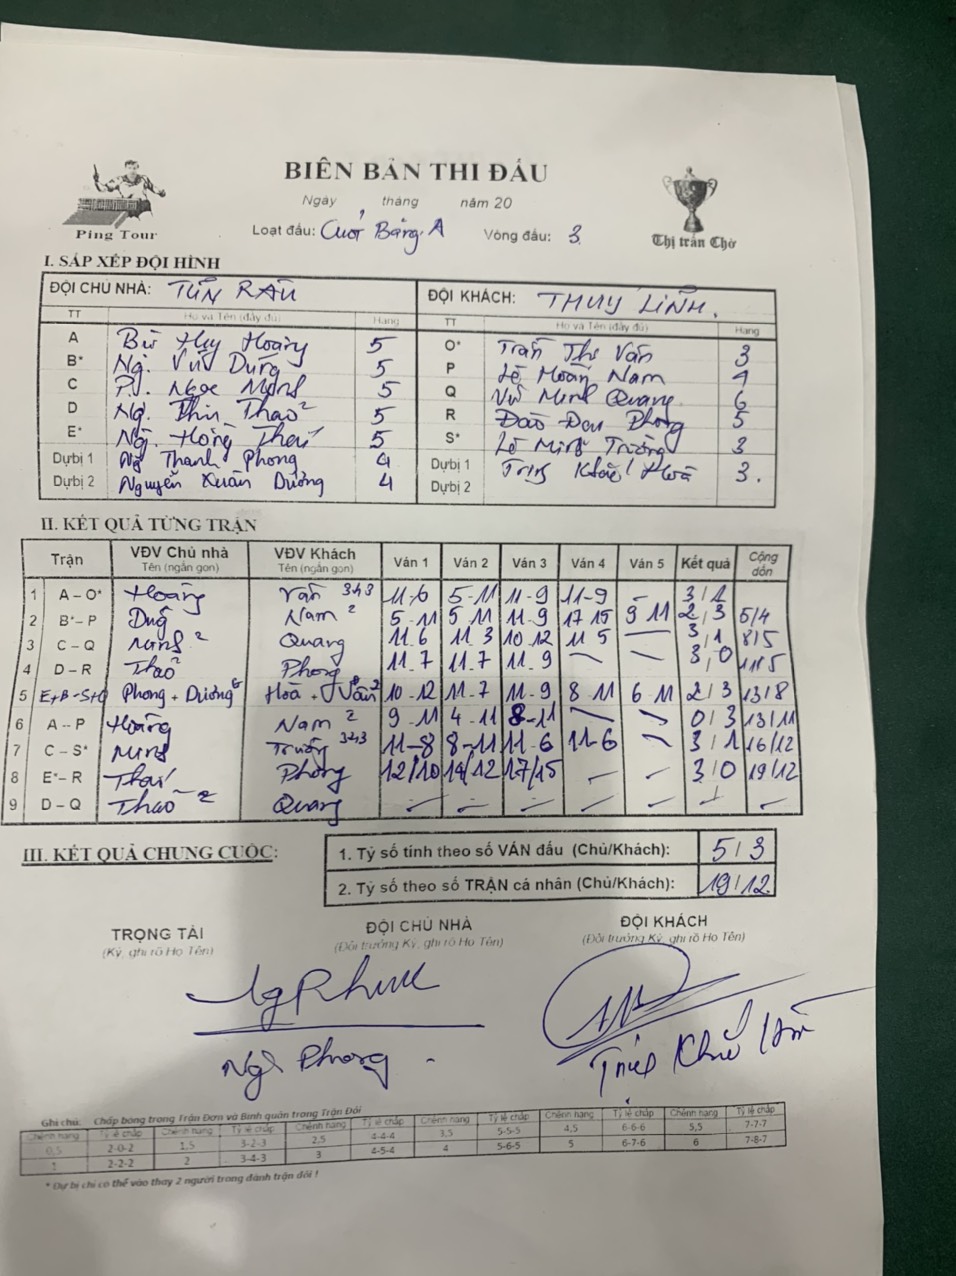 BIÊN BẢN THI ĐẤU
Ping Tour
Ngày tháng năm 20
Loạt đấu: Bảng A Vòng đấu: 3
Thị trấn Chờ
I. SẮP XẾP ĐỘI HÌNH
ĐỘI CHỦ NHÀ: ĐỘI KHÁCH: THUY LINH.
TT Họ và Tên (đầy đủ) Hạng TT Họ và Tên (đầy đủ) Hạng
A Huy Hoàng 5 O* Trần Thị Vân 3
B* Ng. Dũng 5 P Lê Hoàng Nam
C Ngọc Minh 5 Q Vũ Minh Quang 6
D Ng. Thảo 2 5 R Đào Phong 5
E* Ng. Hồng Thái 5 S* Lê Minh Trường 3
Dự bị 1 Ng Thanh Phong 4 Dự bị 1 Hoà 3.
Dự bị 2 Nguyễn Xuân Dương 4 Dự bị 2
II. KẾT QUẢ TỪNG TRẬN
Trận VĐV Chủ nhà Tên (ngắn gọn) VĐV Khách Tên (ngắn gọn) Ván 1 Ván 2 Ván 3 Ván 4 Ván 5 Kết quả Cộng dồn
1 A – O* Hoàng Vân 343 11-6 5-11 11-9 11-9 - 3/1
2 B* – P Dũng Nam 2 5-11 5 11 11-9 17 15 9 11 2/3 5/4
3 C – Q Minh 2 Quang 11.6 11.3 10 12 11 5 — 3/1 8/5
4 D – R Thảo 2 Phong 11.7 11.7 11.9 — — 3/0 11/5
5 E+B-S+O Phong + Dương Hoà + Vân 10-12 11-7 11-9 8 11 6 11 2/3 13/8
6 A – P Hoàng Nam 2 9-11 4-11 8-11 — — 0/3 13/11
7 C – S* Minh Trường 343 11-8 8-11 11-6 11-6 — 3/1 16/12
8 E* – R Thái Phong 12/10 14/12 17/15 — — 3/0 19/12
9 D – Q Thảo 2 Quang — — — — — — —
III. KẾT QUẢ CHUNG CUỘC:
1. Tỷ số tính theo số VÁN đấu (Chủ/Khách): 5/3
2. Tỷ số theo số TRẬN cá nhân (Chủ/Khách): 19/12.
TRỌNG TÀI ĐỘI CHỦ NHÀ ĐỘI KHÁCH
(Ký, ghi rõ Họ Tên) (Đội trưởng Ký, ghi rõ Họ Tên) (Đội trưởng Ký, ghi rõ Họ Tên)
Phong
Ghi chú: Chấp bóng trong Trận Đơn và Bình quân trong Trận Đôi
Chênh hạng Tỷ lệ chấp Chênh hạng Tỷ lệ chấp Chênh hạng Tỷ lệ chấp Chênh hạng Tỷ lệ chấp Chênh hạng Tỷ lệ chấp Chênh hạng Tỷ lệ chấp
0,5 2-0-2 1,5 3-2-3 2,5 4-4-4 3,5 5-5-5 4,5 6-6-6 5,5 7-7-7
1 2-2-2 2 3-4-3 3 4-5-4 4 5-6-5 5 6-7-6 6 7-8-7
* Dự bị chỉ có thể vào thay 2 người trong đánh trận đôi !